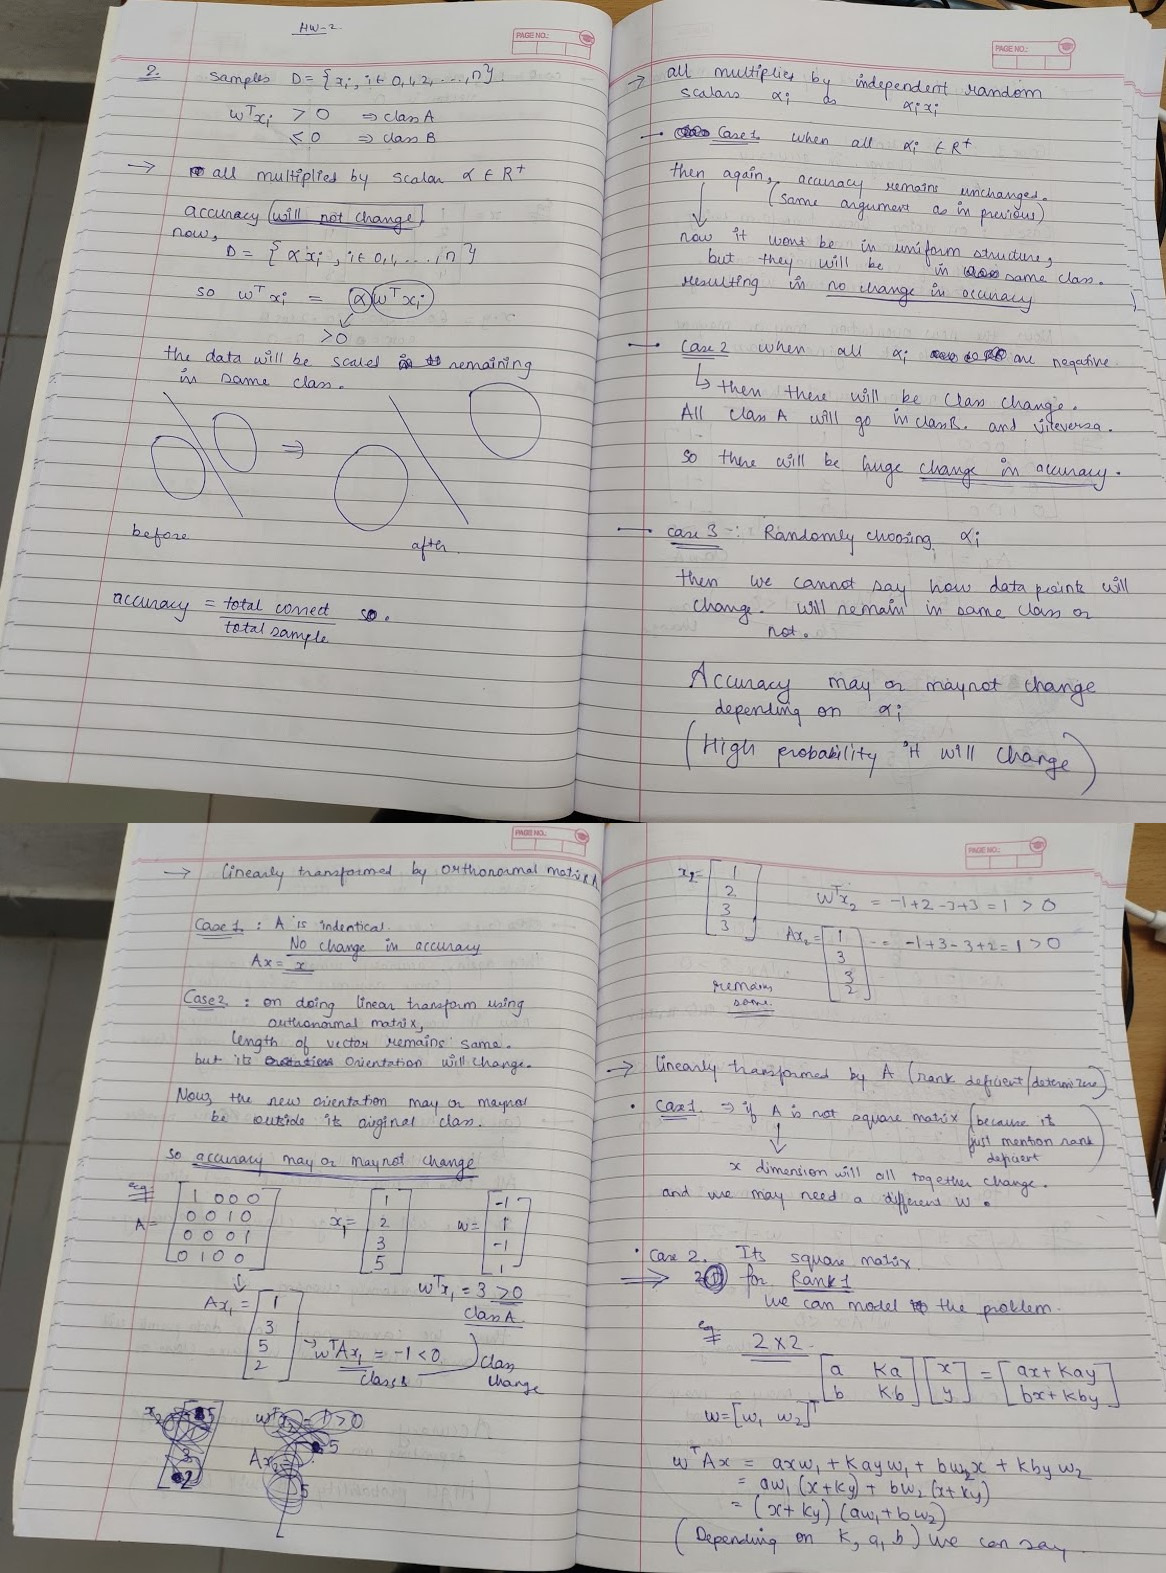 HW-2
PAGE NO.:
2. Samples D = {xi, i ∈ 0,1,2, ..., n}
wᵀxi > 0 ⇒ class A
≤ 0 ⇒ class B
→ all multiplied by scalar α ∈ R⁺
accuracy will not change
now,
D = {αxi, i ∈ 0,1, ..., n}
so wᵀxi = α wᵀxi
>0
the data will be scaled remaining
in same class.
⇒
before
after
accuracy = total correct so.
total sample
PAGE NO.:
→ all multiplied by independent random
scalars αi as αi xi
— Case 1 when all αi ∈ R⁺
then again, accuracy remains unchanged.
(same argument as in previous)
now it wont be in uniform structure,
but they will be in same class.
resulting in no change in accuracy
— Case 2 when all αi are negative.
↳ then there will be class change.
All class A will go in class B. and viceversa.
so there will be huge change in accuracy.
— case 3 -: Randomly choosing αi
then we cannot say how data points will
change. will remain in same class or
not.
Accuracy may or maynot change
depending on αi
(High probability it will change)
PAGE NO.:
→ linearly transformed by orthonormal matrix A
Case 1 : A is indentical.
No change in accuracy
Ax = x
Case 2 : on doing linear transform using
orthonormal matrix,
length of vector remains same.
but its orientation will change.
Now, the new orientation may or maynot
be outside its original class.
so accuracy may or may not change
eg
A = [1 0 0 0
0 0 1 0
0 0 0 1
0 1 0 0]
x₁ = [1
2
3
5]
w = [-1
1
-1
1]
wᵀx₁ = 3 > 0
class A
Ax₁ = [1
3
5
2]
→ wᵀAx₁ = -1 < 0
class B
class
change
PAGE NO.:
x₂ = [1
2
3
3]
wᵀx₂ = -1+2-3+3 = 1 > 0
Ax₂ = [1
3
3
2]
-1+3-3+2 = 1 > 0
remains
same
→ linearly transformed by A (rank deficient/
• Case 1. ⇒ if A is not square matrix (because it
just mention rank
deficient)
↓
x dimension will all together change.
and we may need a different w.
• Case 2. Its square matrix.
⇒ for Rank 1
we can model the problem.
eg
2 × 2
[a Ka
b Kb] [x
y] = [ax + Kay
bx + Kby]
w = [w₁ w₂]ᵀ
wᵀAx = axw₁ + Kayw₁ + bw₂x + kbyw₂
= aw₁(x+ky) + bw₂(x+ky)
= (x+ky)(aw₁+bw₂)
(Depending on K, a, b) we can say